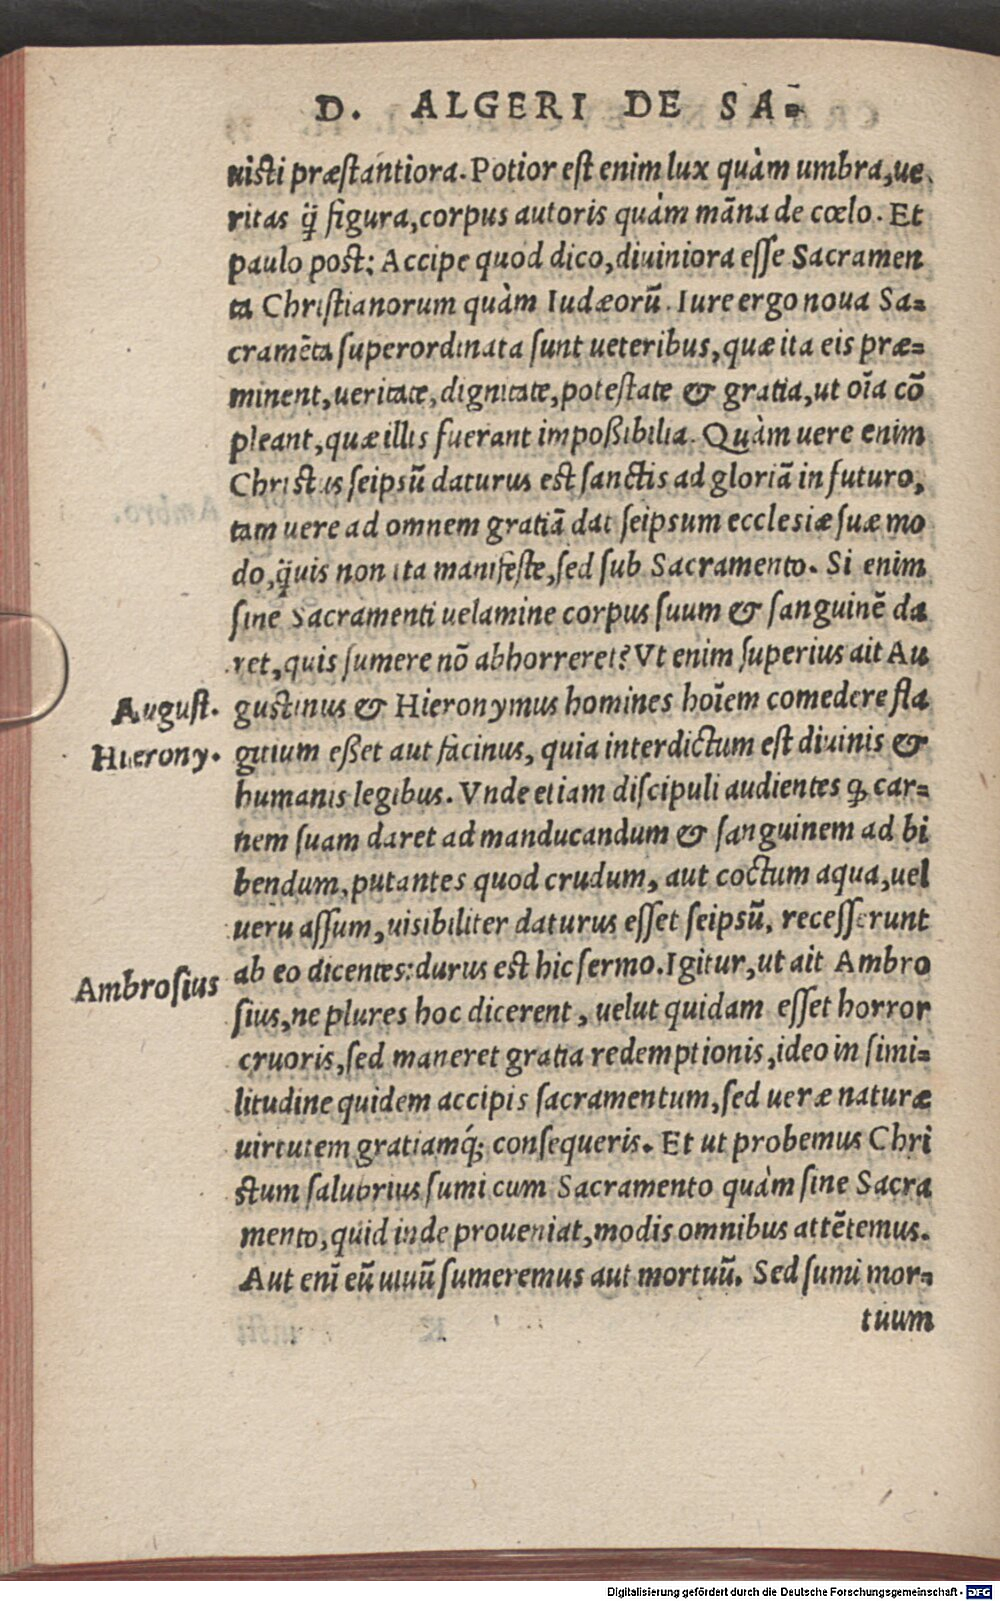 D. ALGERI DE SA=
uisti præstantiora. Potior est enim lux quàm umbra, ue
ritas q̃ figura, corpus autoris quàm mãna de cœlo. Et
paulo post: Accipe quod dico, diuiniora esse Sacramen
ta Christianorum quàm Iudæorũ. Iure ergo noua Sa=
cramẽta superordinata sunt ueteribus, quæ ita eis præ=
minent, ueritate, dignitate, potestate & gratia, ut oĩa cõ
pleant, quæ illis fuerant impoßibilia. Quàm uere enim
Christus seipsũ daturus est sanctis ad gloriã in futuro,
tam uere ad omnem gratiã dat seipsum ecclesiæ suæ mo
do, q̃uis non ita manifeste, sed sub Sacramento. Si enim
sine Sacramenti uelamine corpus suum & sanguinẽ da
ret, quis sumere nõ abhorreret? Vt enim superius ait Au
August. gustinus & Hieronymus homines hoĩem comedere fla
Hierony. gitium eßet aut facinus, quia interdictum est diuinis &
humanis legibus. Vnde etiam discipuli audientes ꝙ car=
nem suam daret ad manducandum & sanguinem ad bi
bendum, putantes quod crudum, aut coctum aqua, uel
ueru assum, uisibiliter daturus esset seipsũ, recesserunt
ab eo dicentes: durus est hic sermo. Igitur, ut ait Ambro
Ambrosius
sius, ne plures hoc dicerent, uelut quidam esset horror
cruoris, sed maneret gratia redemptionis, ideo in simi=
litudine quidem accipis sacramentum, sed ueræ naturæ
uirtutem gratiamq́; consequeris. Et ut probemus Chri
stum salubrius sumi cum Sacramento quàm sine Sacra
mento, quid inde proueniat, modis omnibus attẽtemus.
Aut enĩ eũ uiuũ sumeremus aut mortuũ. Sed sumi mor=
tuum
Digitalisierung gefördert durch die Deutsche Forschungsgemeinschaft - DFG